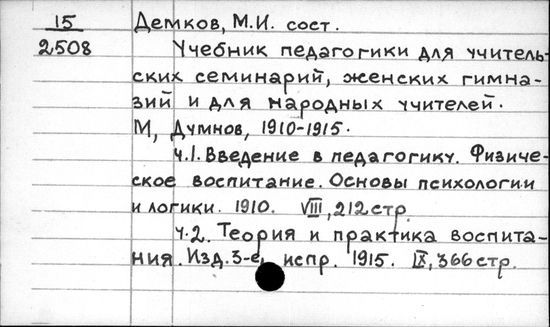 15
2508
Демков, М.И. сост.
Учебник педагогики для учитель-
ских семинарий, женских гимна-
зий и для народных учителей.
М, Думнов, 1910-1915.
ч.1. Введение в педагогику. Физиче-
ское воспитание. Основы психологии
и логики. 1910. VIII, 212 стр.
ч.2. Теория и практика воспита-
ния. Изд. 3-е, испр. 1915. IX, 366 стр.